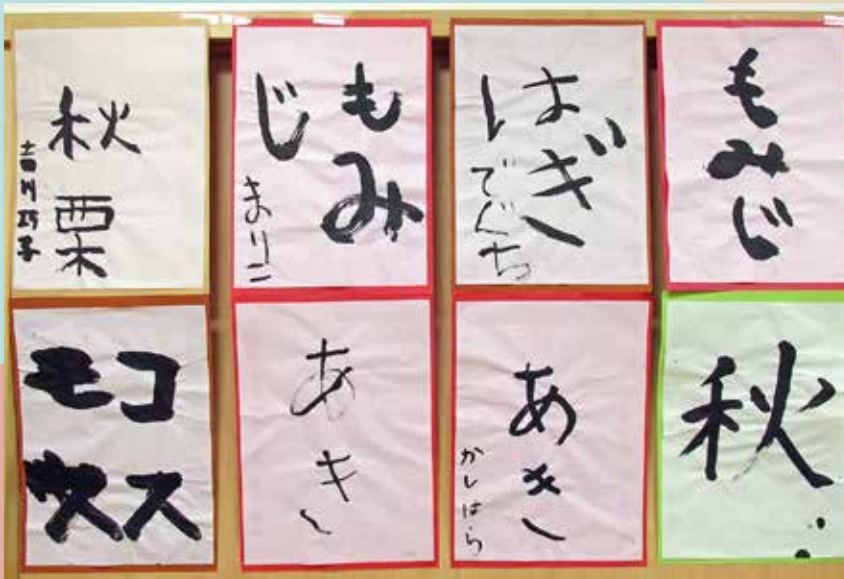 秋栗
もみ
じ
まりこ
はぎ
でぐち
もみじ
コス
モス
あき
あき
かしはら
秋